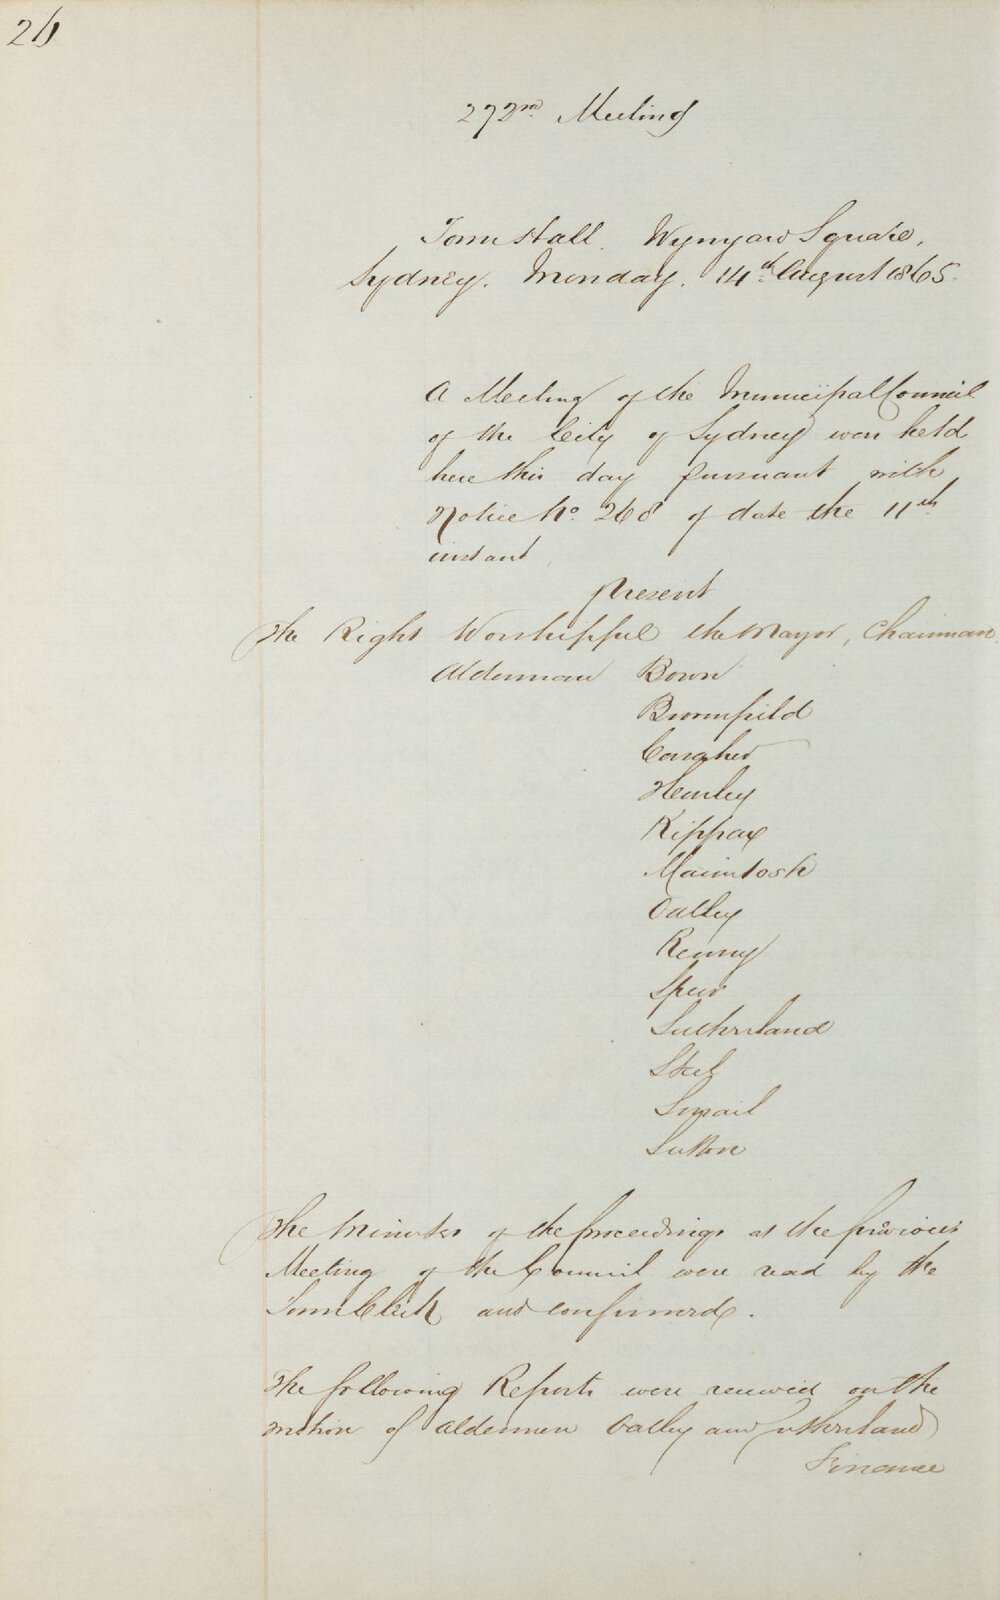 26
272nd Meeting
Town Hall. Wynyard Square,
Sydney. Monday. 14th August 1865.
A Meeting of the Municipal Council
of the City of Sydney was held
here this day pursuant with
Notice No 268 of date the 11th
instant,
present
The Right Worshipful the Mayor, Chairman,
Alderman Bown
Bromfield
Caraher
Hurley
Kippax
Macintosh
Oatley
Renny
Speer
Sutherland
Steel
Smail
Sutton
The Minutes of the proceedings at the previous
Meeting of the Council were read by the
Town Clerk and confirmed.
The following Reports were received on the
motion of Aldermen Oatley and Sutherland
Finance